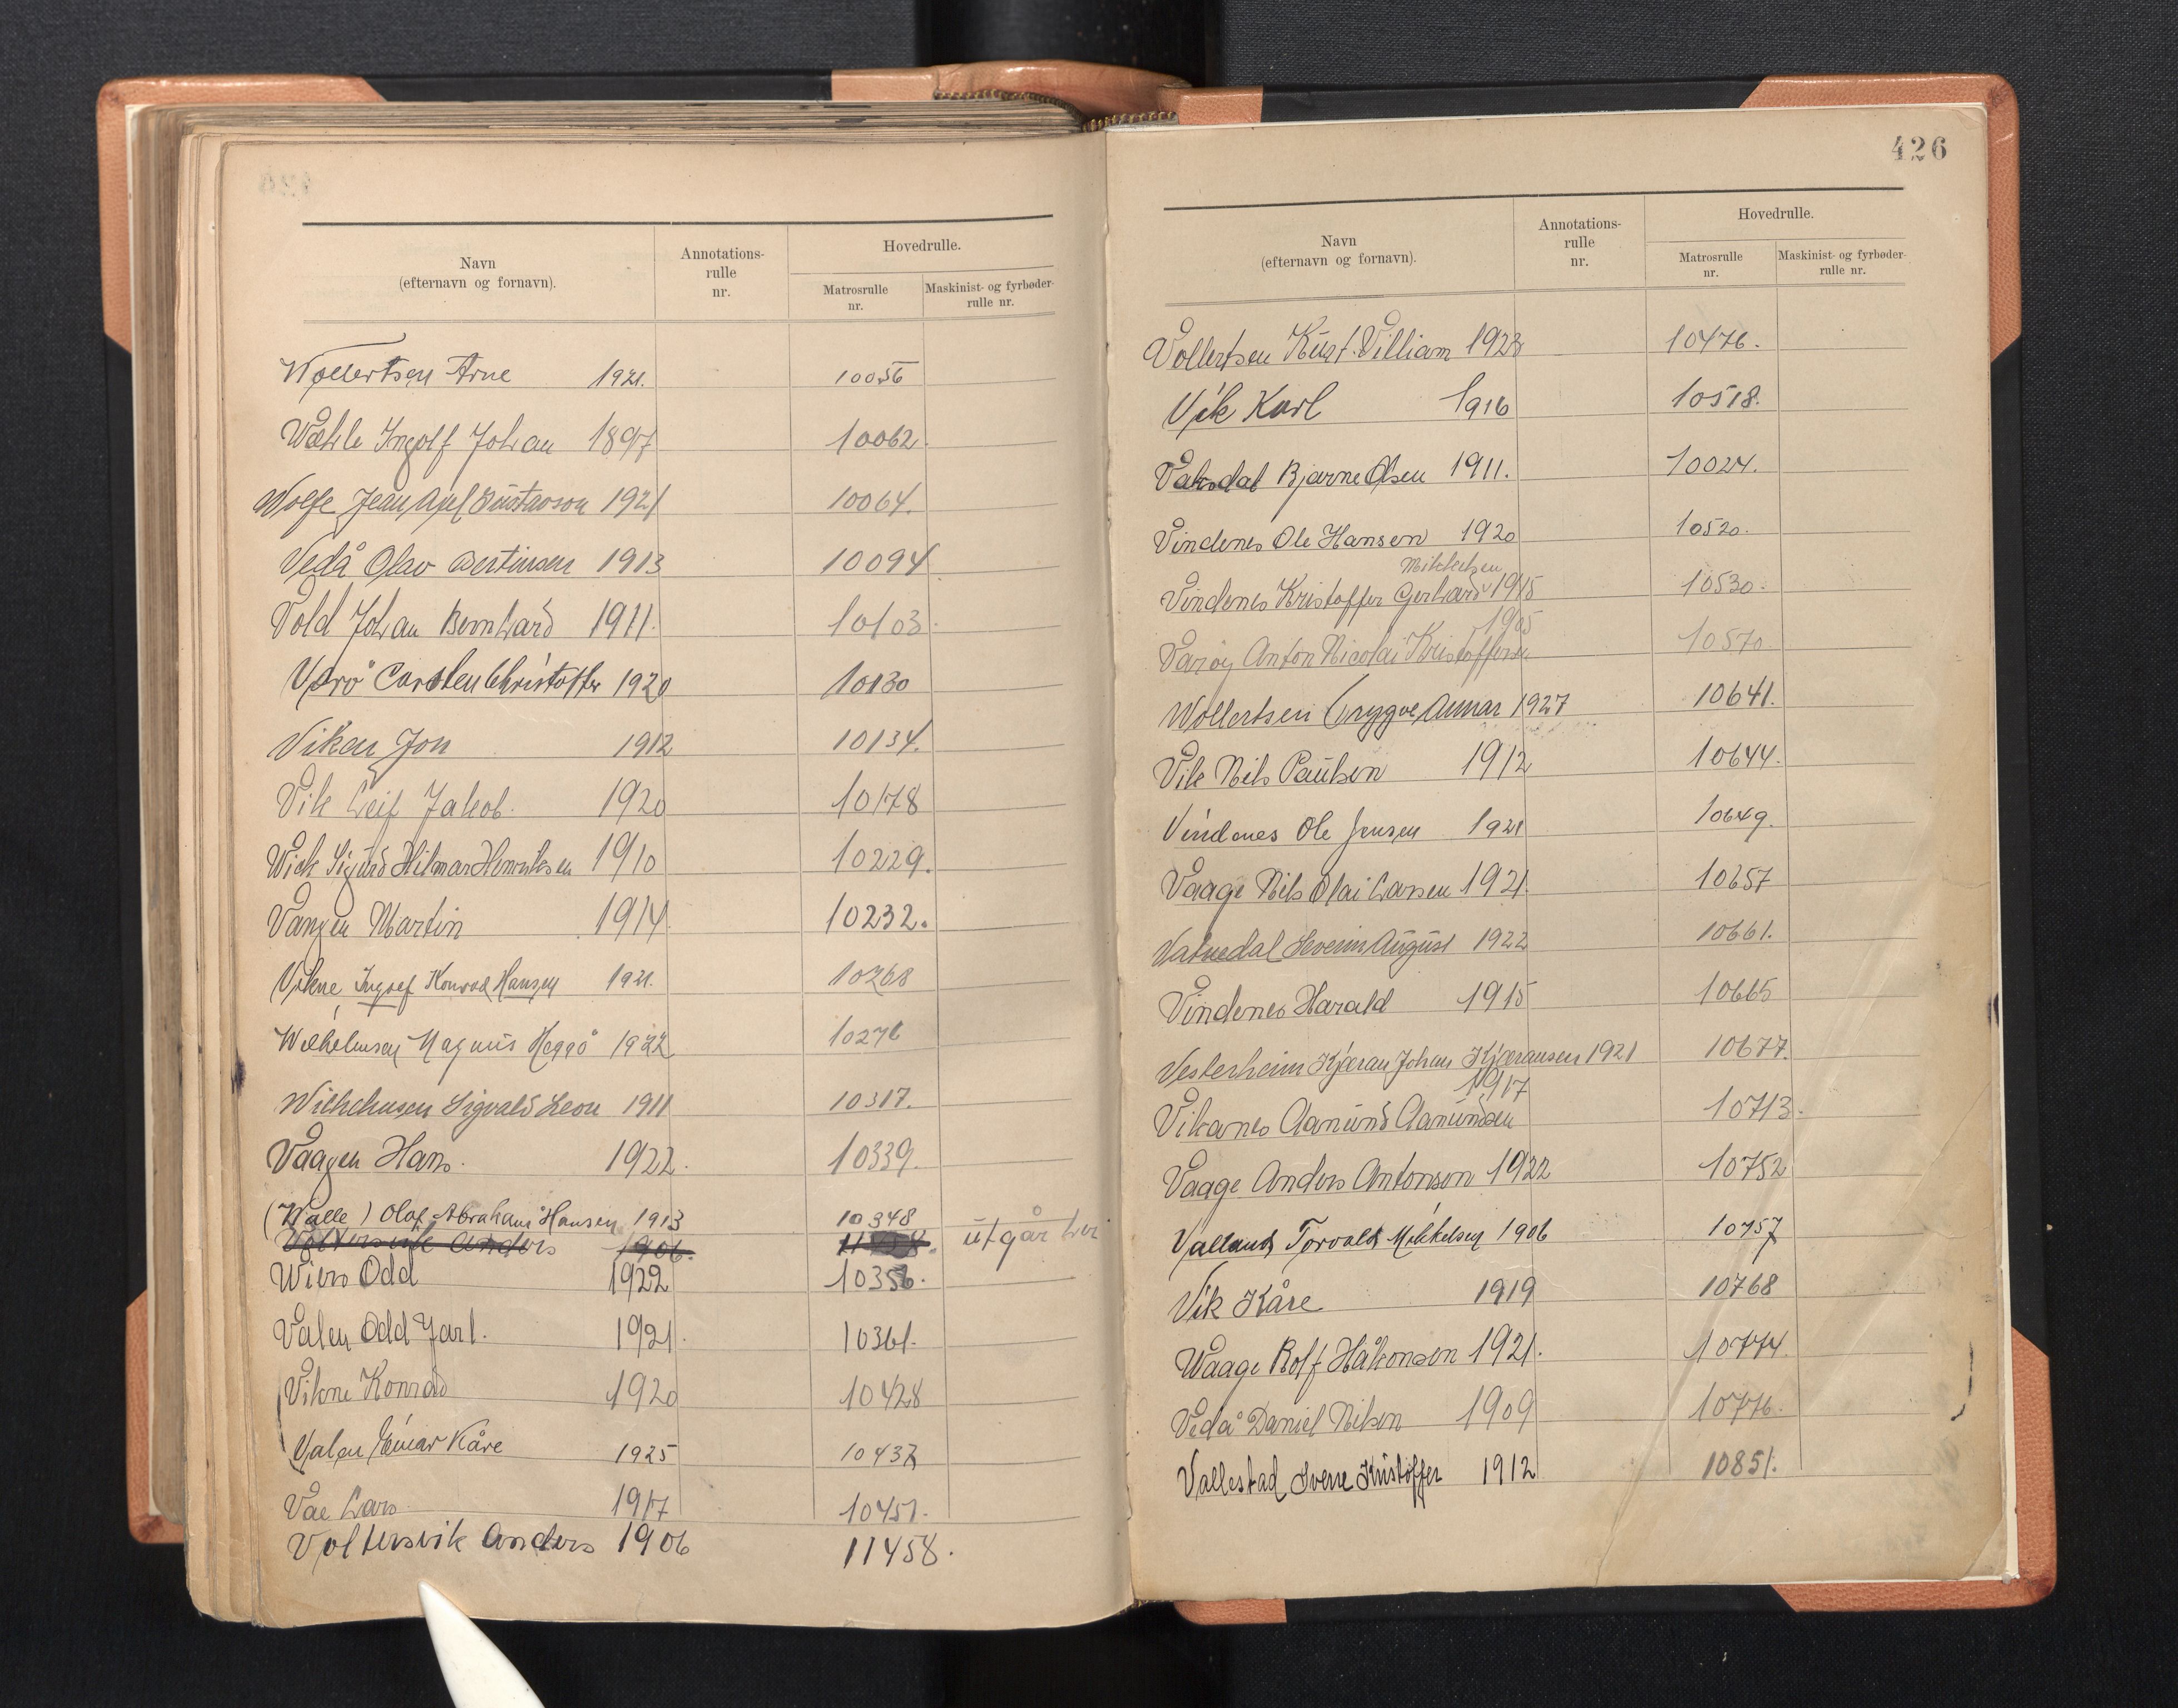 Navn
(efternavn og fornavn).
Annotations-
rulle
nr.
Hovedrulle.
Matrosrulle
nr.
Maskinist- og fyrbøder-
rulle nr.
Wollertsen Arne 1921. 10056
Wæhle Ingolf Johan 1897 10062.
Wolfe Jean Axel Gustavson 1921 10064.
Vedå Olav Bertinsen 1913 10094
Vold Johan Bernhard 1911. 10103.
Værø Carsten Christoffer 1920 10130
Viken Jon 1912 10134.
Vik Leif Jakob. 1920 10178
Wick Sigurd Hilmar Henriksen 1910 10229.
Vangen Martin 1914. 10232.
Vikne, Ingolf Konrad Hansen 1921. 10268
Wilhelmsen Magnus Heggø 1922 10276
Wilhelmsen Sigvald Leon 1911 10317.
Vaagen Hans. 1922. 10339.
(Walle) Olaf Abraham Hansen 1913 10348
Voltersvik Anders 1906. utgår her
Wiers Odd 1922 10356.
Valen Odd Jarl. 1921. 10361.
Vikne Konrad 1920 10428
Valen Einar Kåre 1925 10437
Vae Lars 1917 10451.
Voltersvik Anders 1906 11458.
426
Navn
(efternavn og fornavn).
Annotations-
rulle
nr.
Hovedrulle.
Matrosrulle
nr.
Maskinist- og fyrbøder-
rulle nr.
Vollertsen Kurt. Villiam 1923 10476.
Vik Karl 1916 10518.
Vaksdal Bjarne Olsen 1911. 10024.
Vindenes Ole Hansen 1920 10520.
Mikkelsen
Vindenes Kristoffer Gerhard 1915 10530.
1905
Varøy Anton Nicolai Kristoffersen 10570.
Wollertsen Trygve Annar 1927 10641.
Vik Nils Paulsen 1912 10644.
Vindenes Ole Jensen 1921 10649.
Vaage Nils Olai Larsen 1921. 10657
Vatnedal Severin August 1922 10661.
Vindenes Harald 1915 10665
Vesterheim Kjæran Johan Kjæransen 1921 10677.
1917
Vikanes Aamund Aamundsen 10713.
Vaage Anders Antonsen 1922 10752
Valland Torvald Mikkelsen 1906 10757
Vik Kåre 1919 10768
Waage Rolf Håkonsen 1921. 10774.
Vedå Daniel Nilsen 1909 10776.
Vallestad Sverre Kristoffer 1912 10851.